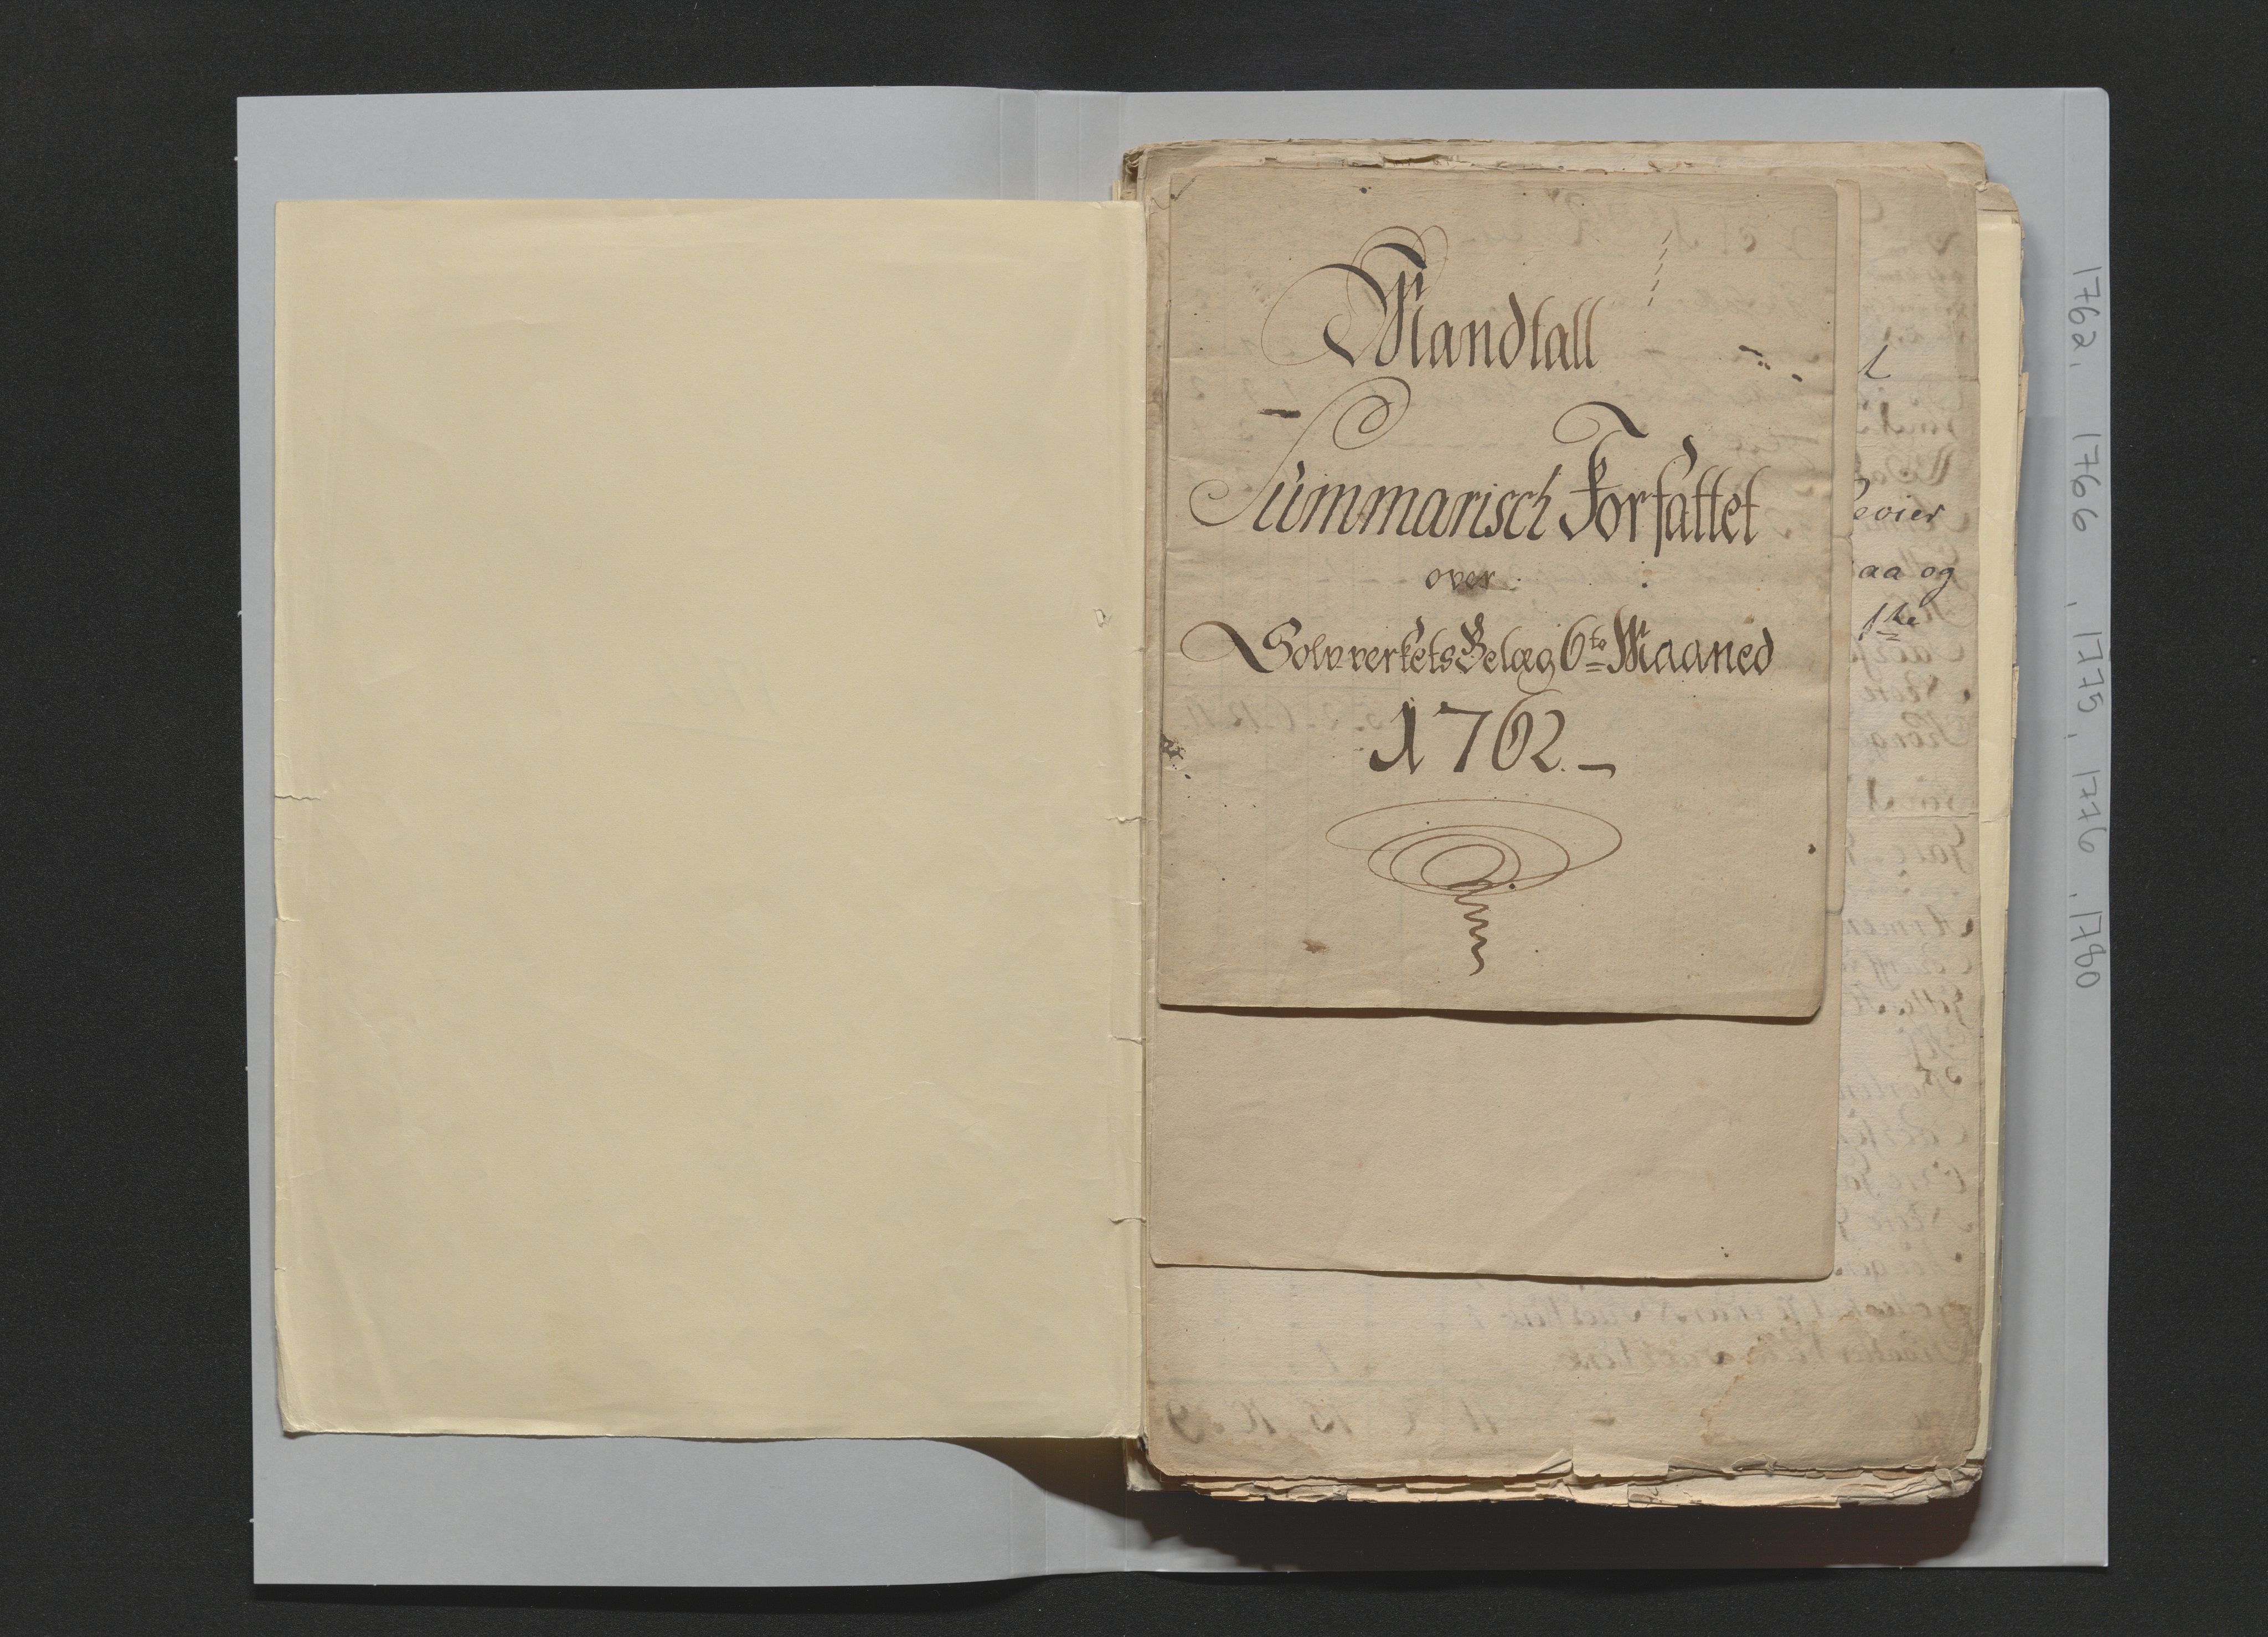 Mandtall
Summarisch Forfattet
over
Sølvverkets Belæg 6te Maaned
1762.
evier
aa og
1762. 1766. 1775. 1776. 1790